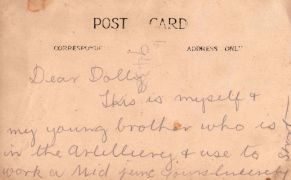 POST CARD
CORRESPONDE ADDRESS ONLY
Dear Dolly
This is myself &
my young brother who is
in the Artillery & use to
work a Mid Yours Sincerely